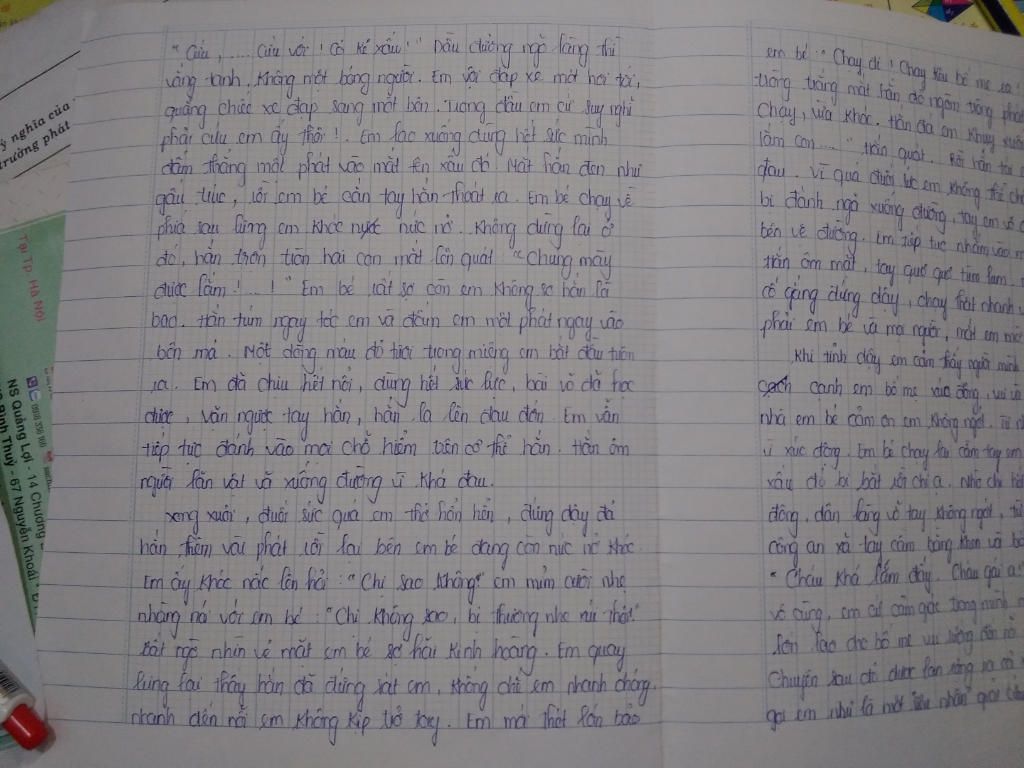 "Cứu, ..... Cứu với! Có kẻ xấu!" Dẫu đường ngõ lặng thì
vắng tanh. Không một bóng người. Em vội đạp xe một hơi tới,
quăng chiếc xe đạp sang một bên. Trong đầu em cứ suy nghĩ
phải cứu em ấy thôi!. Em lao xuống dùng hết sức mình
đấm thẳng một phát vào mắt tên xấu đó. Mắt hắn đen như
gấu trúc, rồi em bé cắn tay hắn thoát ra. Em bé chạy về
phía sau lưng em khóc nức nở. Không dừng lại ở
đó, hắn trợn tròn hai con mắt lên quát "Chúng mày
được lắm!...!" Em bé rất sợ còn em không sợ hắn là
bao. Hắn túm ngay tóc em và đấm em một phát ngay vào
bên má. Một dòng máu đỏ tươi trong miệng em bắt đầu tiên
ra. Em đã chịu hết nổi, dùng hết sức lực, bài võ đã học
được, vặn ngược tay hắn, hắn la lên đau đớn. Em vẫn
tiếp tục đánh vào mọi chỗ hiểm trên cơ thể hắn. Hắn ôm
người lăn vật vã xuống đường vì khá đau.
Xong xuôi, đuối sức quá em thở hổn hển, đứng dậy đá
hắn thêm vài phát rồi lại bên em bé đang còn nức nở khóc.
Em ấy khóc nấc lên hỏi: "Chị sao không" em mỉm cười nhẹ
nhàng nói với em bé: "Chị không sao, bị thương nhẹ thôi".
Bất ngờ nhìn vẻ mặt em bé sợ hãi kinh hoàng. Em quay
lưng lại thấy hắn đã đứng sát em, không chỉ em nhanh chóng.
nhanh đến nỗi em không kịp trở tay. Em mới thốt lên bảo
em bé: "Chạy, đi! Chạy kêu bố mẹ ra!
trừng trừng mắt hắn,
chạy, vừa khóc. Hắn đá em khuỵu
làm con ....." hắn quát. Rồi hắn
đau. Vì quá đuối sức em không thể
bị đánh ngã xuống đường, tay em
bên vệ đường. Em tiếp tục nhắm vào
hắn ôm mặt, tay quơ quơ tìm
cố gắng đứng dậy, chạy thật nhanh
phải em bé và mọi người, mắt em
Khi tỉnh dậy em cảm thấy người mình
cạnh em bố mẹ xúc động, vui
nhà em bé cảm ơn em không ngớt.
vì xúc động. Em bé chạy lại cầm tay em
xấu đó bị bắt rồi chị ạ. Nhờ chị
đông, dân làng vỗ tay không ngớt,
công an xã tay cầm bằng khen và
"Cháu khá lắm đấy. Cháu gái ạ."
vô cùng, em cứ cảm giác trong mình
lớn lao cho bố mẹ vui lòng
Chuyện sau đó được lan rộng ra cả
gọi em như là một "siêu nhân"
ý nghĩa của
trường phát
Tại Tp. Hà Nội
NS Quảng Lợi - 14 Chương
67 Nguyễn Khoái